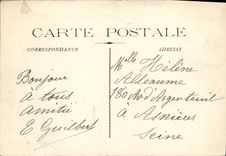 CARTE POSTALE
CORRESPONDANCE
ADRESSE
Bonjour
A tous
amitié
E Guilbert
Mlle Hélène
Alleaume
180 Av d'Argenteuil
a Asnières
Seine